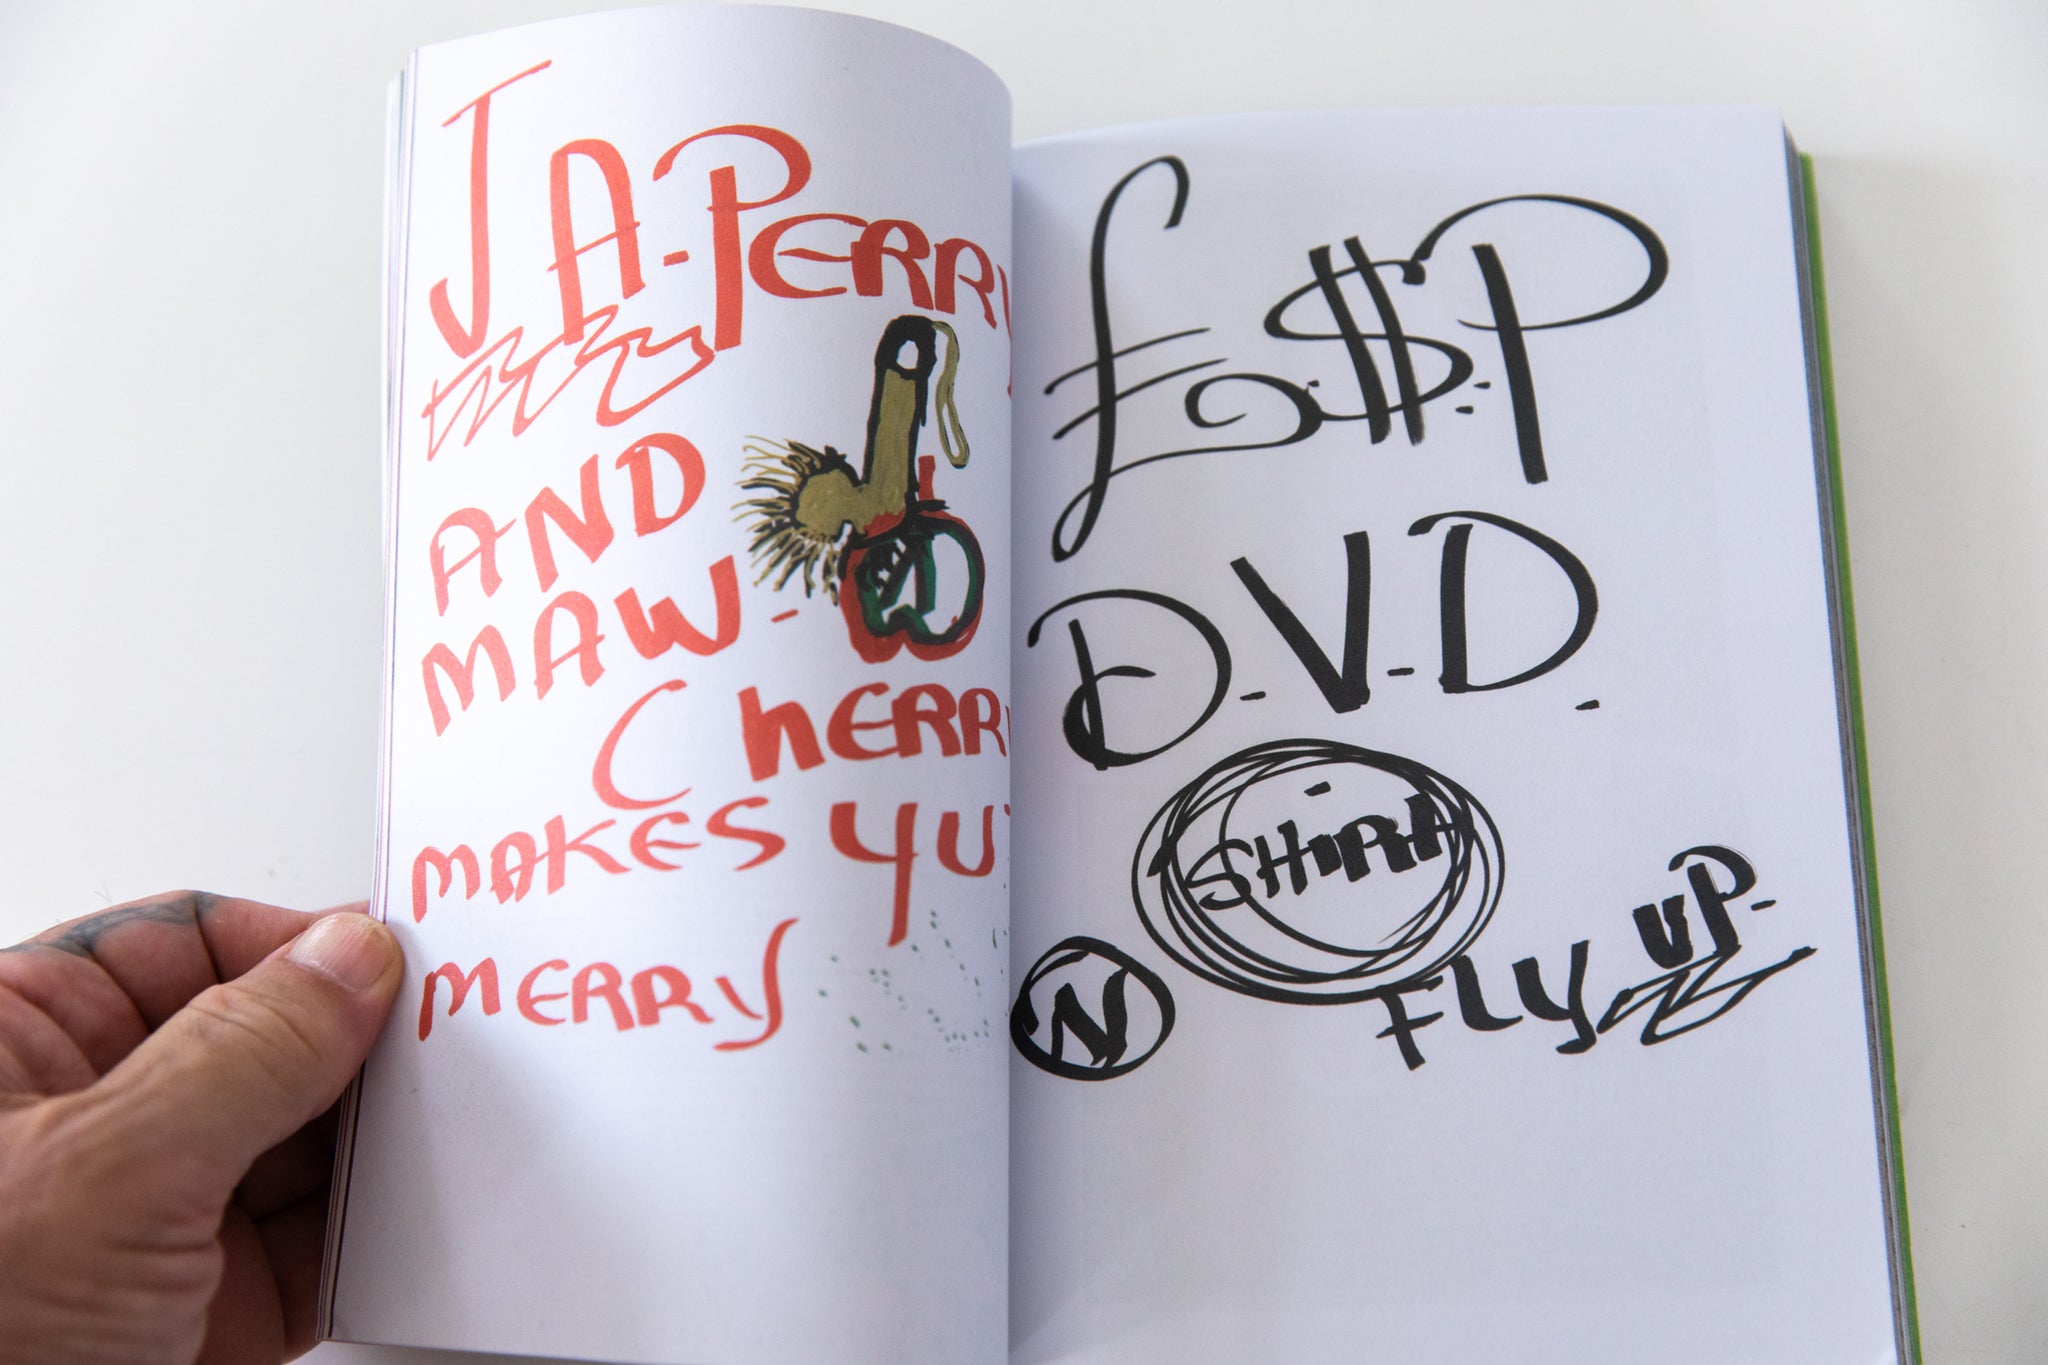 JA-PERRY
AND
MAW-
CHERRY
MAKES YU
MERRY
£$P
D.V.D.
SHiRA
N
FLY UP-